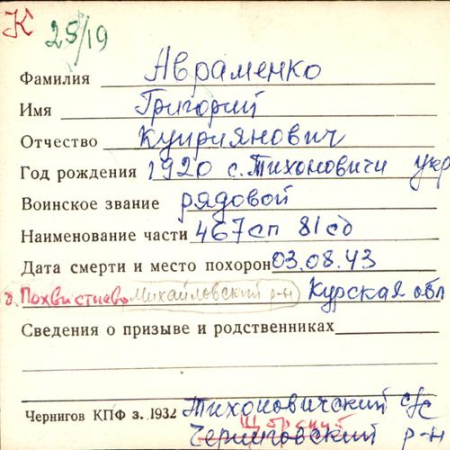 К 25/19
Фамилия Авраменко
Имя Григорий
Отчество Куприянович
Год рождения 1920 с. Тихоновичи укр
Воинское звание рядовой
Наименование части 467 сп 81 сд
Дата смерти и место похорон 03.08.43
д. Похвистнево Михайловский р-н Курская обл
Сведения о призыве и родственниках
Чернигов КПФ з. 1932 Тихоновичский с/с
Щорский
Черниговский р-н